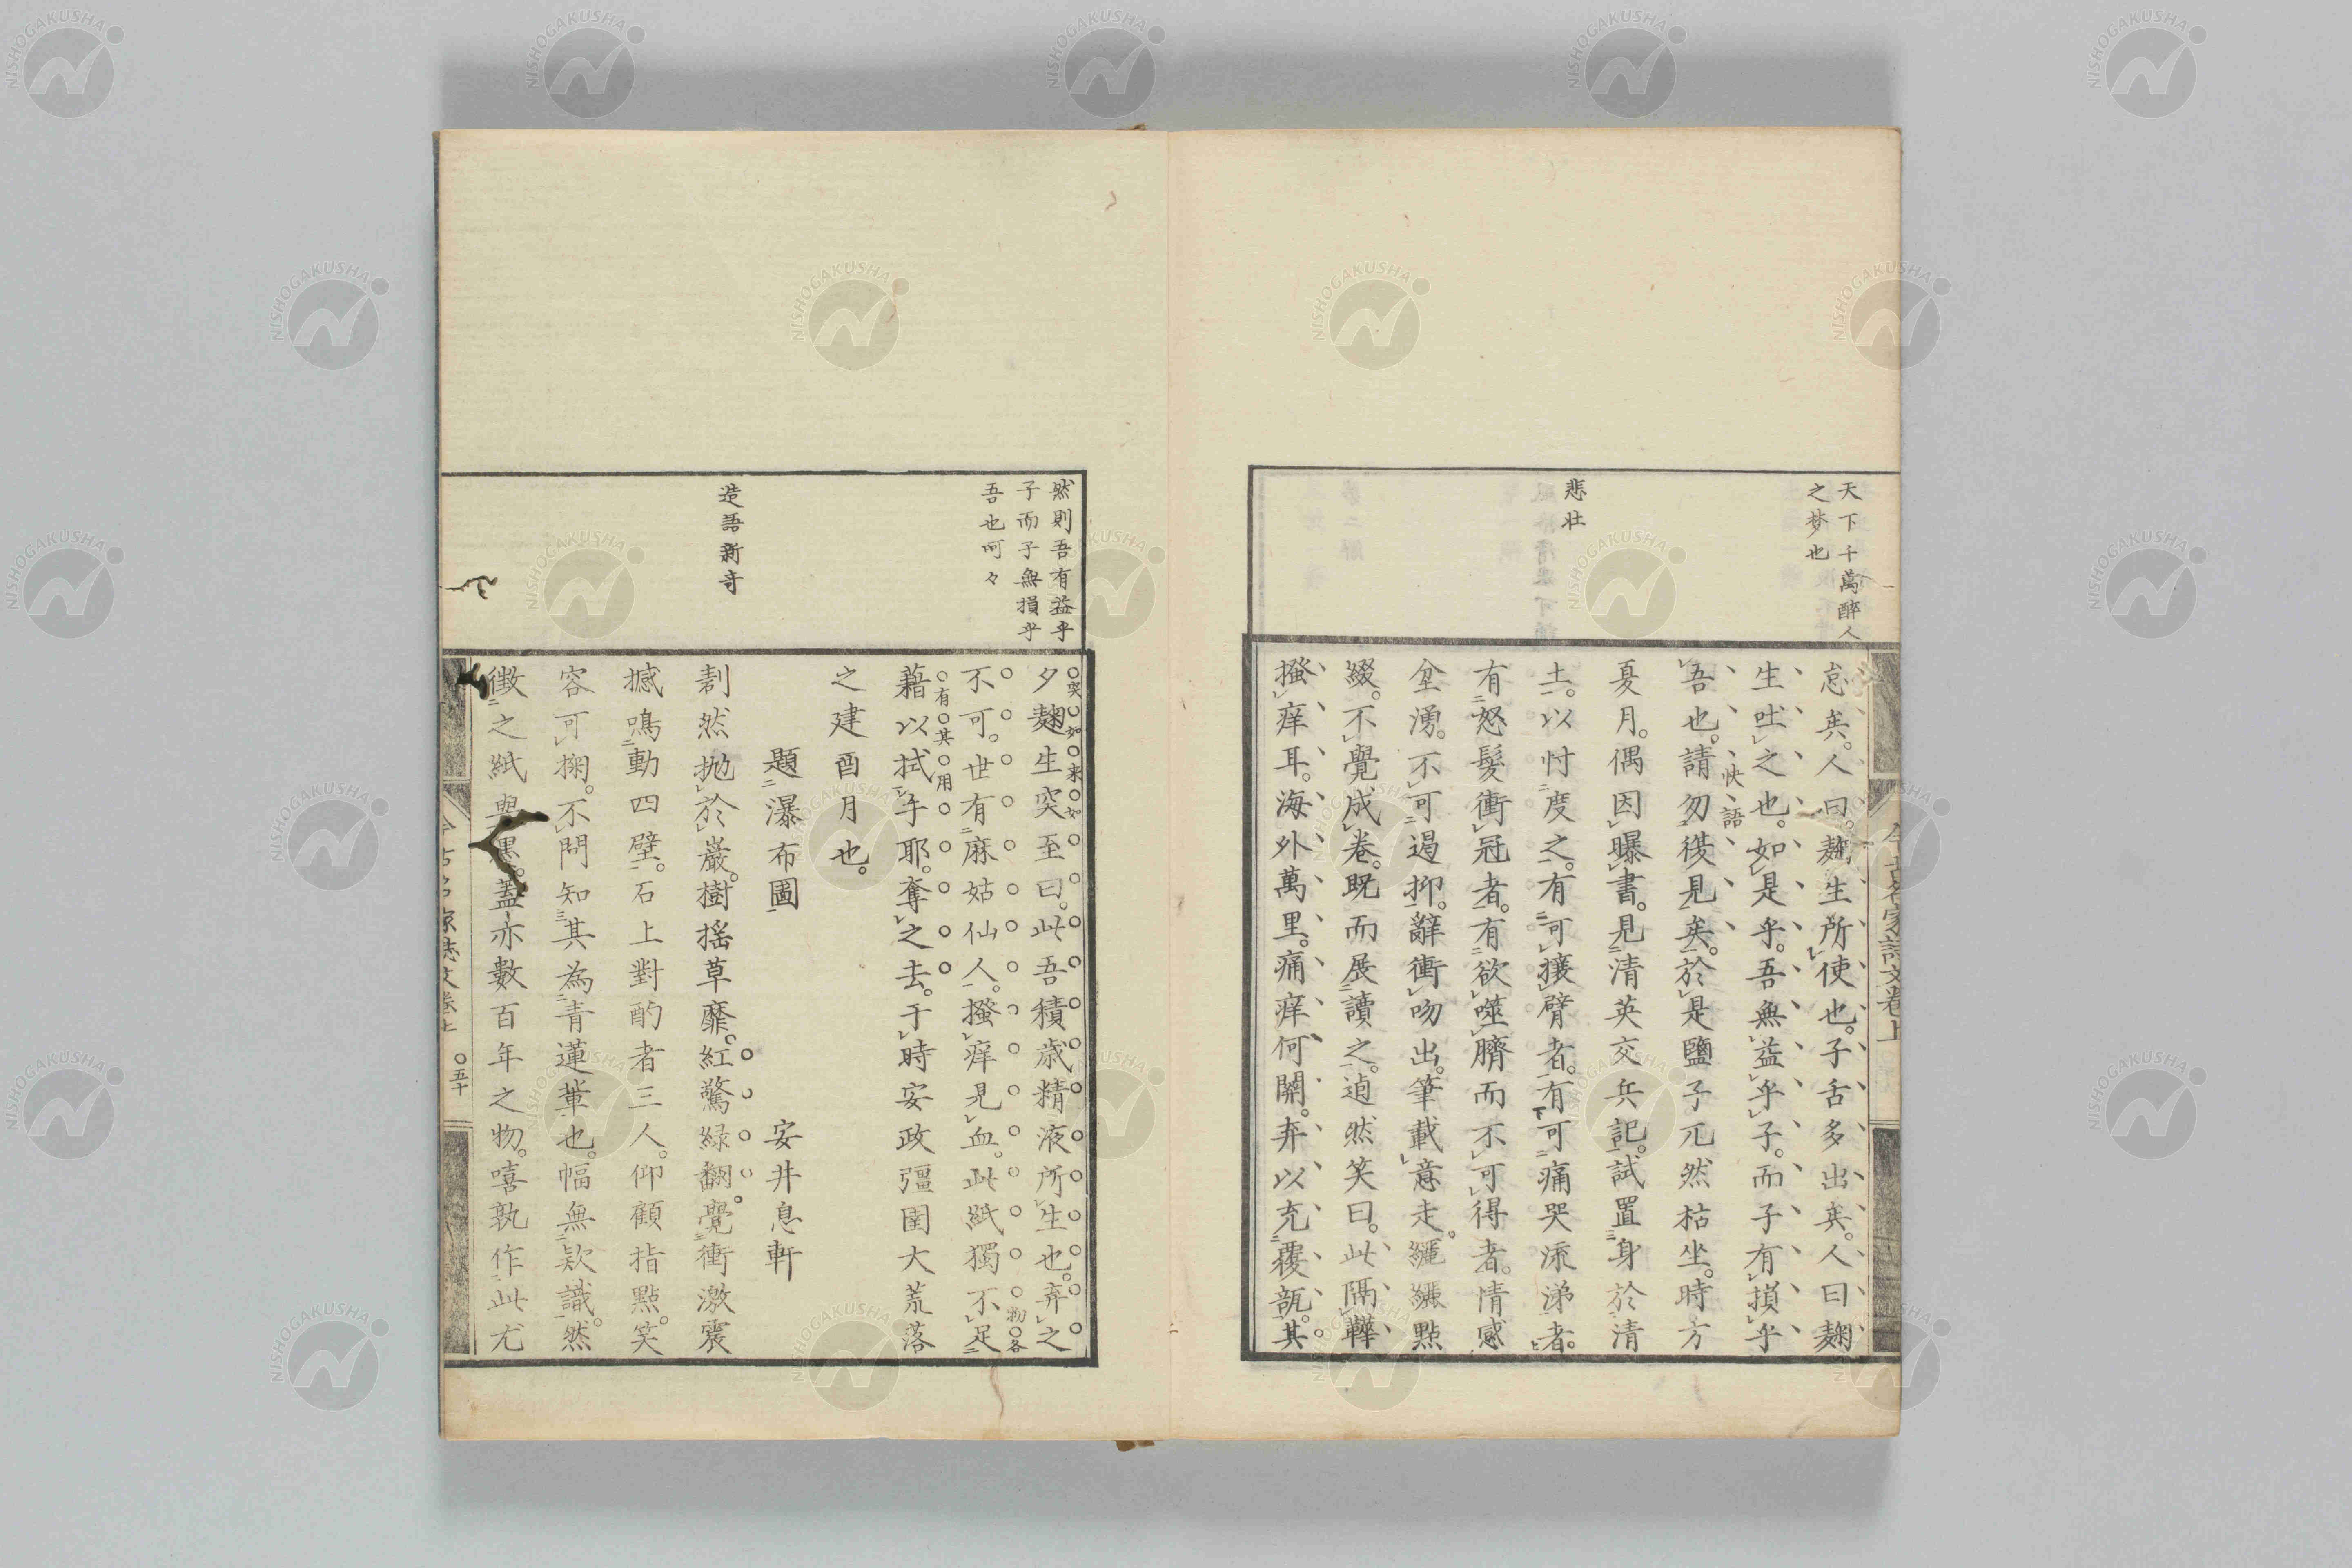 天下千萬醉人
之梦也
悲壮
怠矣。人曰。麹生所使也。子舌多出矣。人曰麹
生吐之也。如是乎。吾無益乎子。而子有損乎
吾也。請勿復見矣。於是鹽子兀然枯坐。時方
快語
夏月。偶因曝書。見清英交兵記。試置身於清
土。以忖度之。有可攘臂者。有可痛哭添涕者。
有怒髮衝冠者。有欲噬臍而不可得者。情感
坌湧。不可遏抑。辭衝吻出。筆載意走。纚纚點
綴。不覺成卷。既而展讀之。逌然笑曰。此隔鞾
搔痒耳。海外萬里。痛痒何關。弃以充覆瓿。其
今古名家詩文卷上
然則吾有益乎
子而子無損乎
吾也呵々
造語新奇
夕麹生突至曰。此吾積歳精液所生也。弃之
突如来如
不可。世有麻姑仙人。搔痒見血。此紙獨不足
物各
藉以拭乎耶。奪之去。于時安政彊圉大荒落
有其用
之建酉月也。
題瀑布圖
安井息軒
劃然抛於巖。樹搖草靡。紅驚緑翻。覺衝激震
撼鳴動四壁。石上對酌者三人。仰顧指點。笑
容可掬。不問知其為青蓮輩也。幅無欵識。然
徴之紙與黒。蓋亦數百年之物。嘻孰作此尤
五十